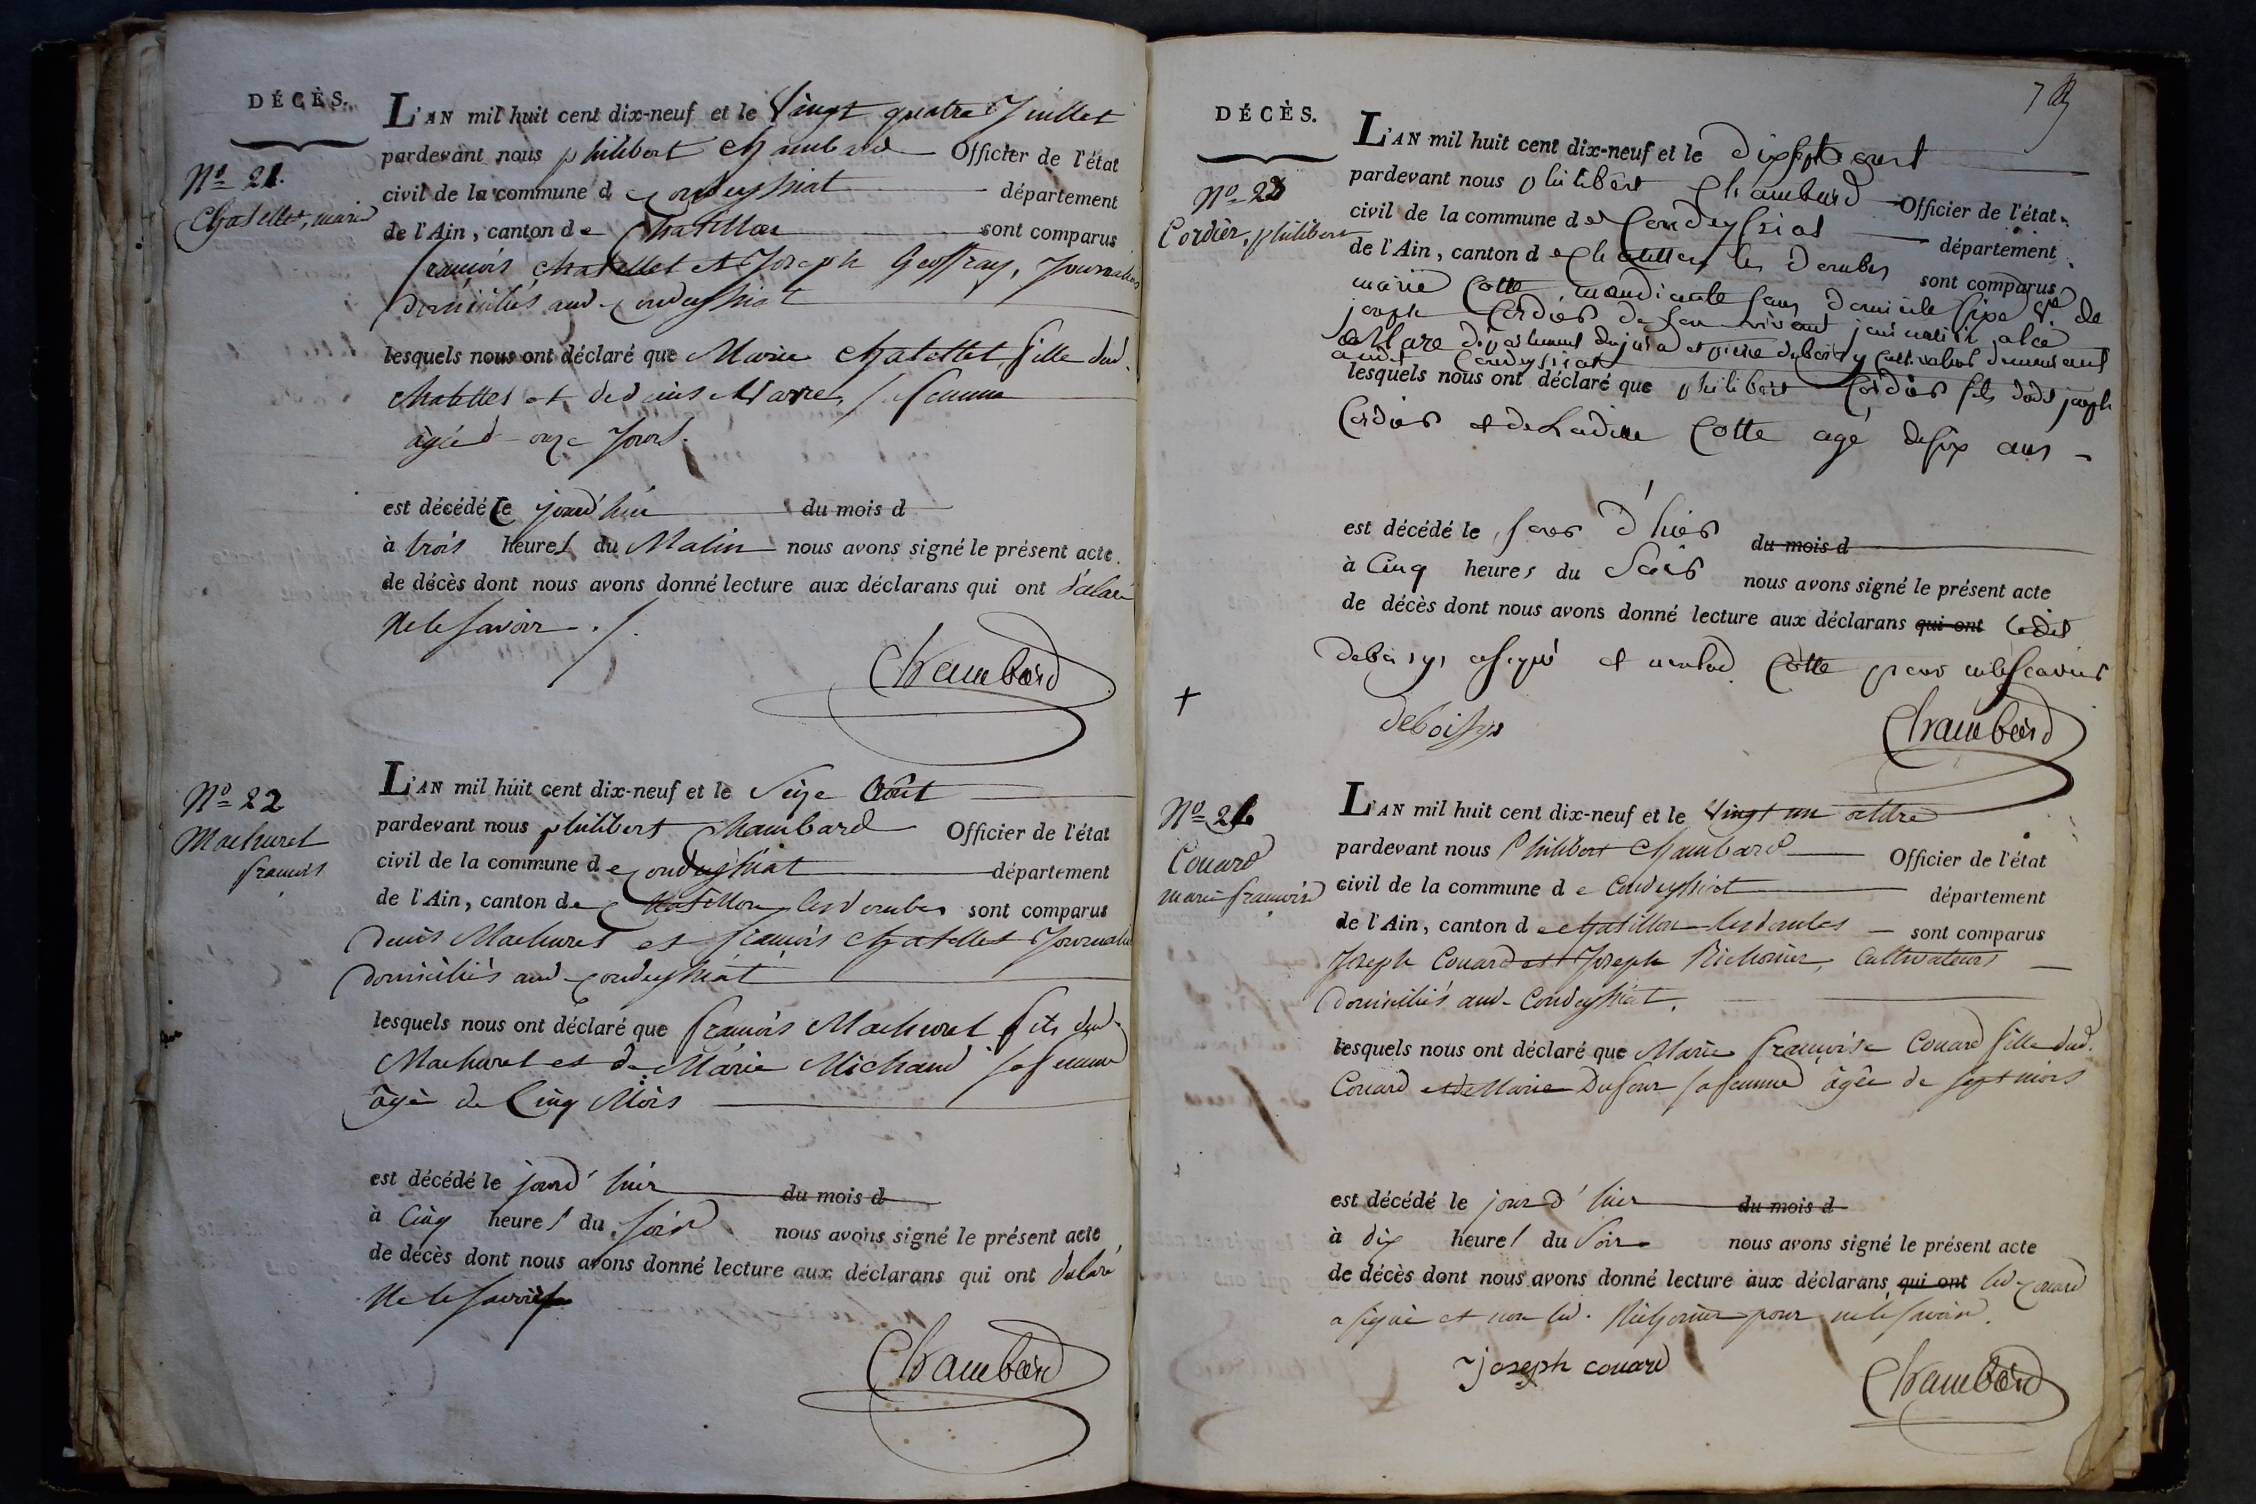 DÉCÈS.
Nº 21.
Chatellet, marie
L'AN mil huit cent dix-neuf et le Vingt quatre Juillet
pardevant nous philibert Chambard Officier de l'état
civil de la commune de Condeyssiat département
de l'Ain, canton de Chatillon sont comparus
françois Chatellet et Joseph Geoffray, Journaliers
domiciliés aud. Condeyssiat
lesquels nous ont déclaré que Marie Chatellet, fille dud.
Chatellet et de sa femme
âgée d'onze Jours.
est décédée le jourd'hui du mois d
à trois heures du Matin nous avons signé le présent acte
de décès dont nous avons donné lecture aux déclarans qui ont déclaré
Ne le savoir ./.
Chambard
Nº 22
Machuret
françois
L'AN mil huit cent dix-neuf et le Seize Août
pardevant nous philibert Chambard Officier de l'état
civil de la commune de Condeyssiat département
de l'Ain, canton de Chatillon les dombes sont comparus
Denis Machuret et françois Chatellet Journaliers
domiciliés aud. Condeyssiat
lesquels nous ont déclaré que françois Machuret fils dud.
Machuret et de Marie Michaud sa femme
âgé de Cinq Mois
est décédé le jourd'hier du mois d
à Cinq heures du soir nous avons signé le présent acte
de décès dont nous avons donné lecture aux déclarans qui ont déclaré
Ne le savoir
Chambard
DÉCÈS.
Nº 23
Cordier, philibert
L'AN mil huit cent dix-neuf et le dixsept aout
pardevant nous philibert Chambard Officier de l'état
civil de la commune de Condeyssiat département
de l'Ain, canton de Chatillon les Dombes sont comparus
marie Cotte mandiante sans domicile fixe Ve de
joseph Cordier de son vivant journalier
département du jura et pierre deboissy cultivateur demeurant
audit Condeyssiat
lesquels nous ont déclaré que philibert Cordier fils dudit joseph
Cordier et de Ladite Cotte agé de six ans
est décédé le jour d'hier du mois d
à Cinq heures du Soir nous avons signé le présent acte
de décès dont nous avons donné lecture aux déclarans qui ont Ledit
deboissy a signé et non lad. Cotte pour ne le scavoir
deboissy
Chambard
Nº 24
Couard
marie françoise
L'AN mil huit cent dix-neuf et le Vingt un octobre
pardevant nous Philibert Chambard Officier de l'état
civil de la commune de Condeyssiat département
de l'Ain, canton de Chatillon les dombes sont comparus
Joseph Couard et Joseph Richonier, Cultivateurs
domiciliés aud. Condeyssiat.
lesquels nous ont déclaré que Marie françoise Couard fille dud.
Couard et de Marie Dufour sa femme âgée de sept mois
est décédé le jour d'hier du mois d
à dix heures du Soir nous avons signé le présent acte
de décès dont nous avons donné lecture aux déclarans qui ont led. Couard
a signé et non led. Richonier pour ne le savoir.
joseph couard
Chambard